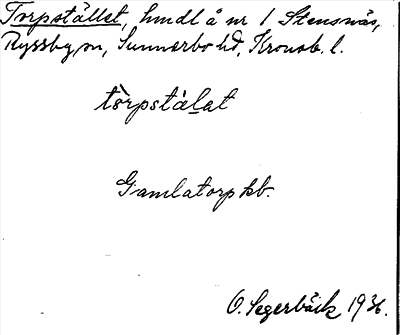 Torpstället, hmdl å nr 1 Stensnäs,
Ryssby sn, Sunnerbo hd, Kronob. l.
tòrpstäl̲at
Gamlatorp kb.
O. Segerbäck 1936.